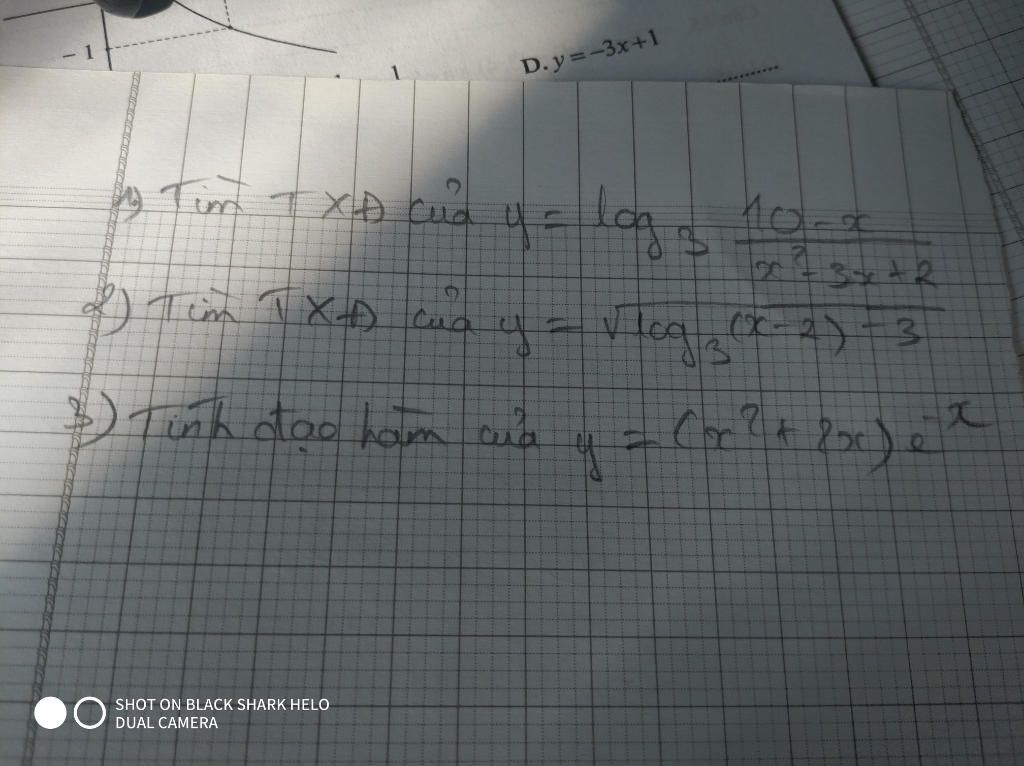 - 1
D. y = -3x+1
1) Tìm TXĐ của y = log₃ (10-x)/(x²-3x+2)
2) Tìm TXĐ của y = √(log₃(x-2) - 3)
3) Tính đạo hàm của y = (x²+2x)e⁻ˣ
SHOT ON BLACK SHARK HELO
DUAL CAMERA